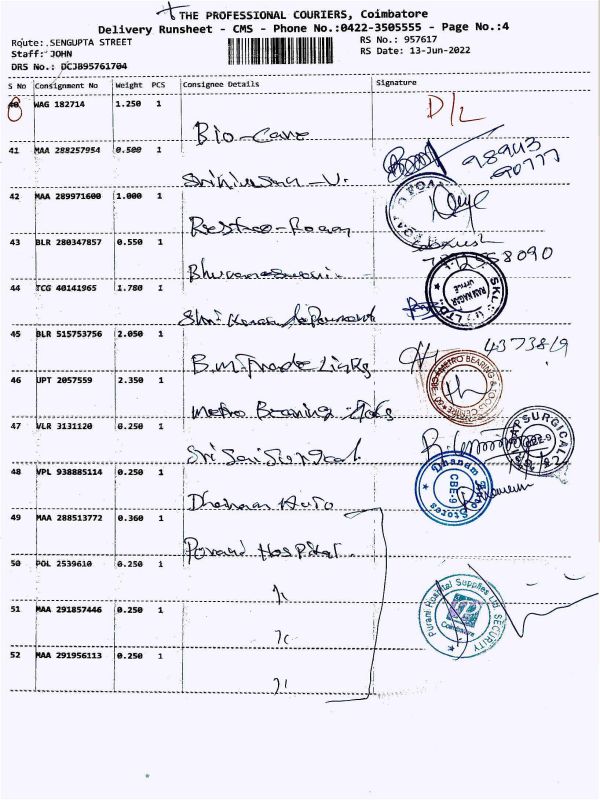 THE PROFESSIONAL COURIERS, Coimbatore
Delivery Runsheet - CMS - Phone No.:0422-3505555 - Page No.:4
Route: SENGUPTA STREET
RS No.: 957617
Staff: JOHN
RS Date: 13-Jun-2022
DRS No.: DCJB95761704
S No Consignment No Weight PCS Consignee Details Signature
40 WAG 182714 1.250 1
D/L
Bio-Care
41 MAA 288257954 0.500 1
98943
90777
42 MAA 289971600 1.000 1
43 BLR 280347857 0.550 1
Bhuvaneswari.
44 TCG 40141965 1.780 1
SKL
RAM NAGAR
45 BLR 515753756 2.050 1
B.M. Trade Links
46 UPT 2057559 2.350 1
METRO BEARING & TOOLS CENTRE
Metro Bearing Tools
47 VLR 3131120 0.250 1
SURGICAL
Sri Sai Surgical
48 VPL 938885114 0.250 1
Stores
CBE-9
Dhanam Auto
49 MAA 288513772 0.360 1
Purani Hospital
50 POL 2539610 0.250 1
Purani Hospital Supplies Ltd. SECURITY
Coimbatore
51 MAA 291857446 0.250 1
52 MAA 291956113 0.250 1